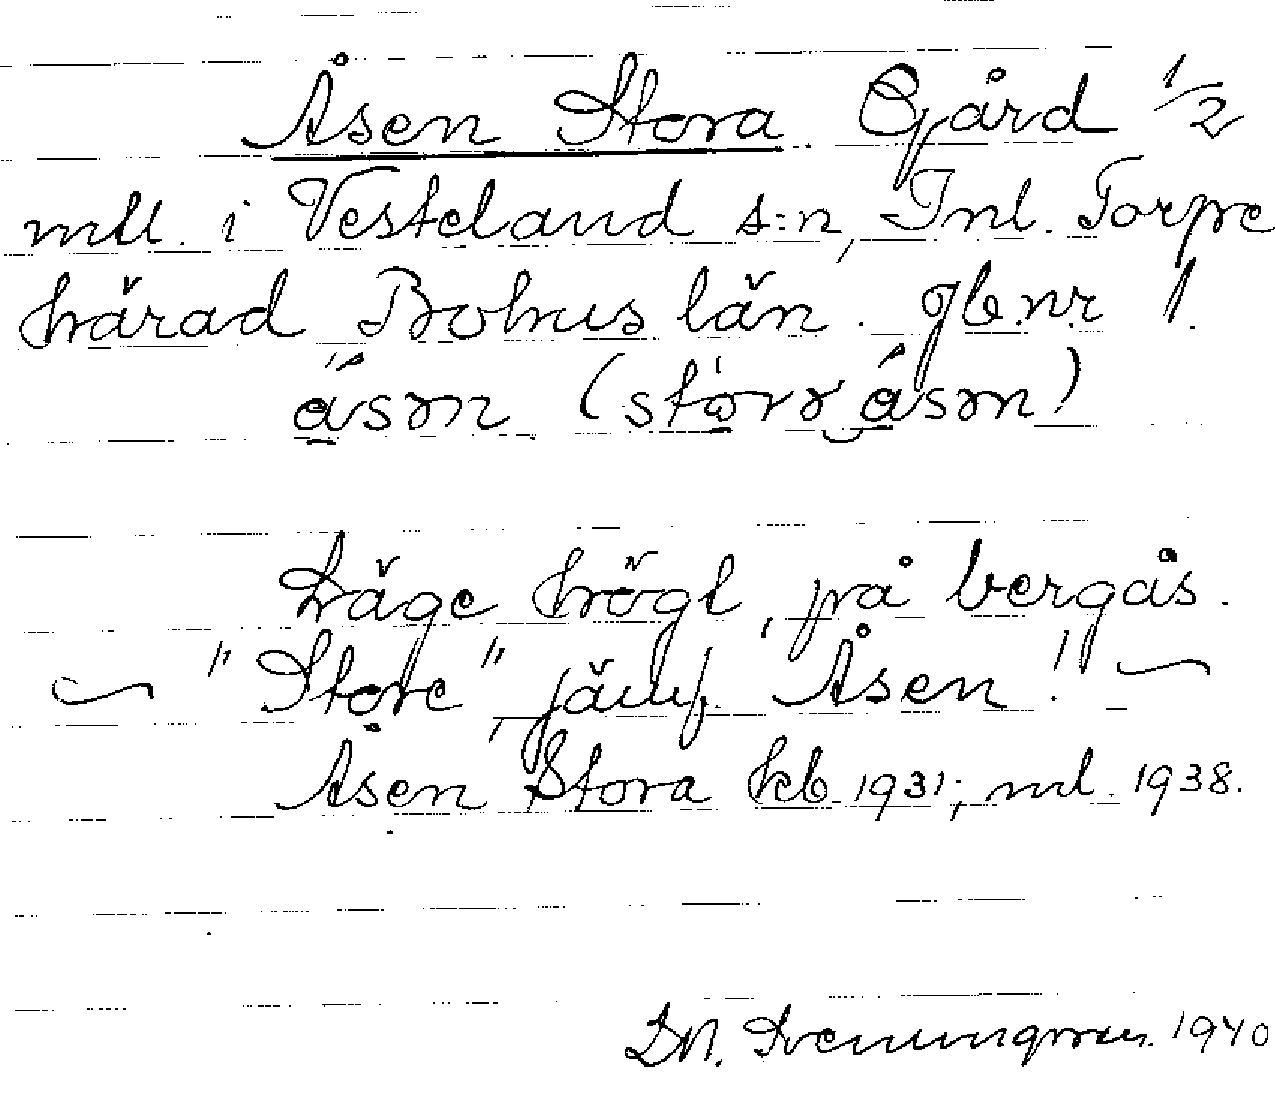 Åsen Stora Gård 1/2
mtl. i Vesteland s:n, Inl. Torpe
härad Bohus län. jb.nr 1.
åsən (störr åsən)
Läge högt, på bergås.
~ "Store", jämf. Åsen! ~
Åsen Stora kb 1931; ml. 1938.
D.N. Svenungsson. 1940